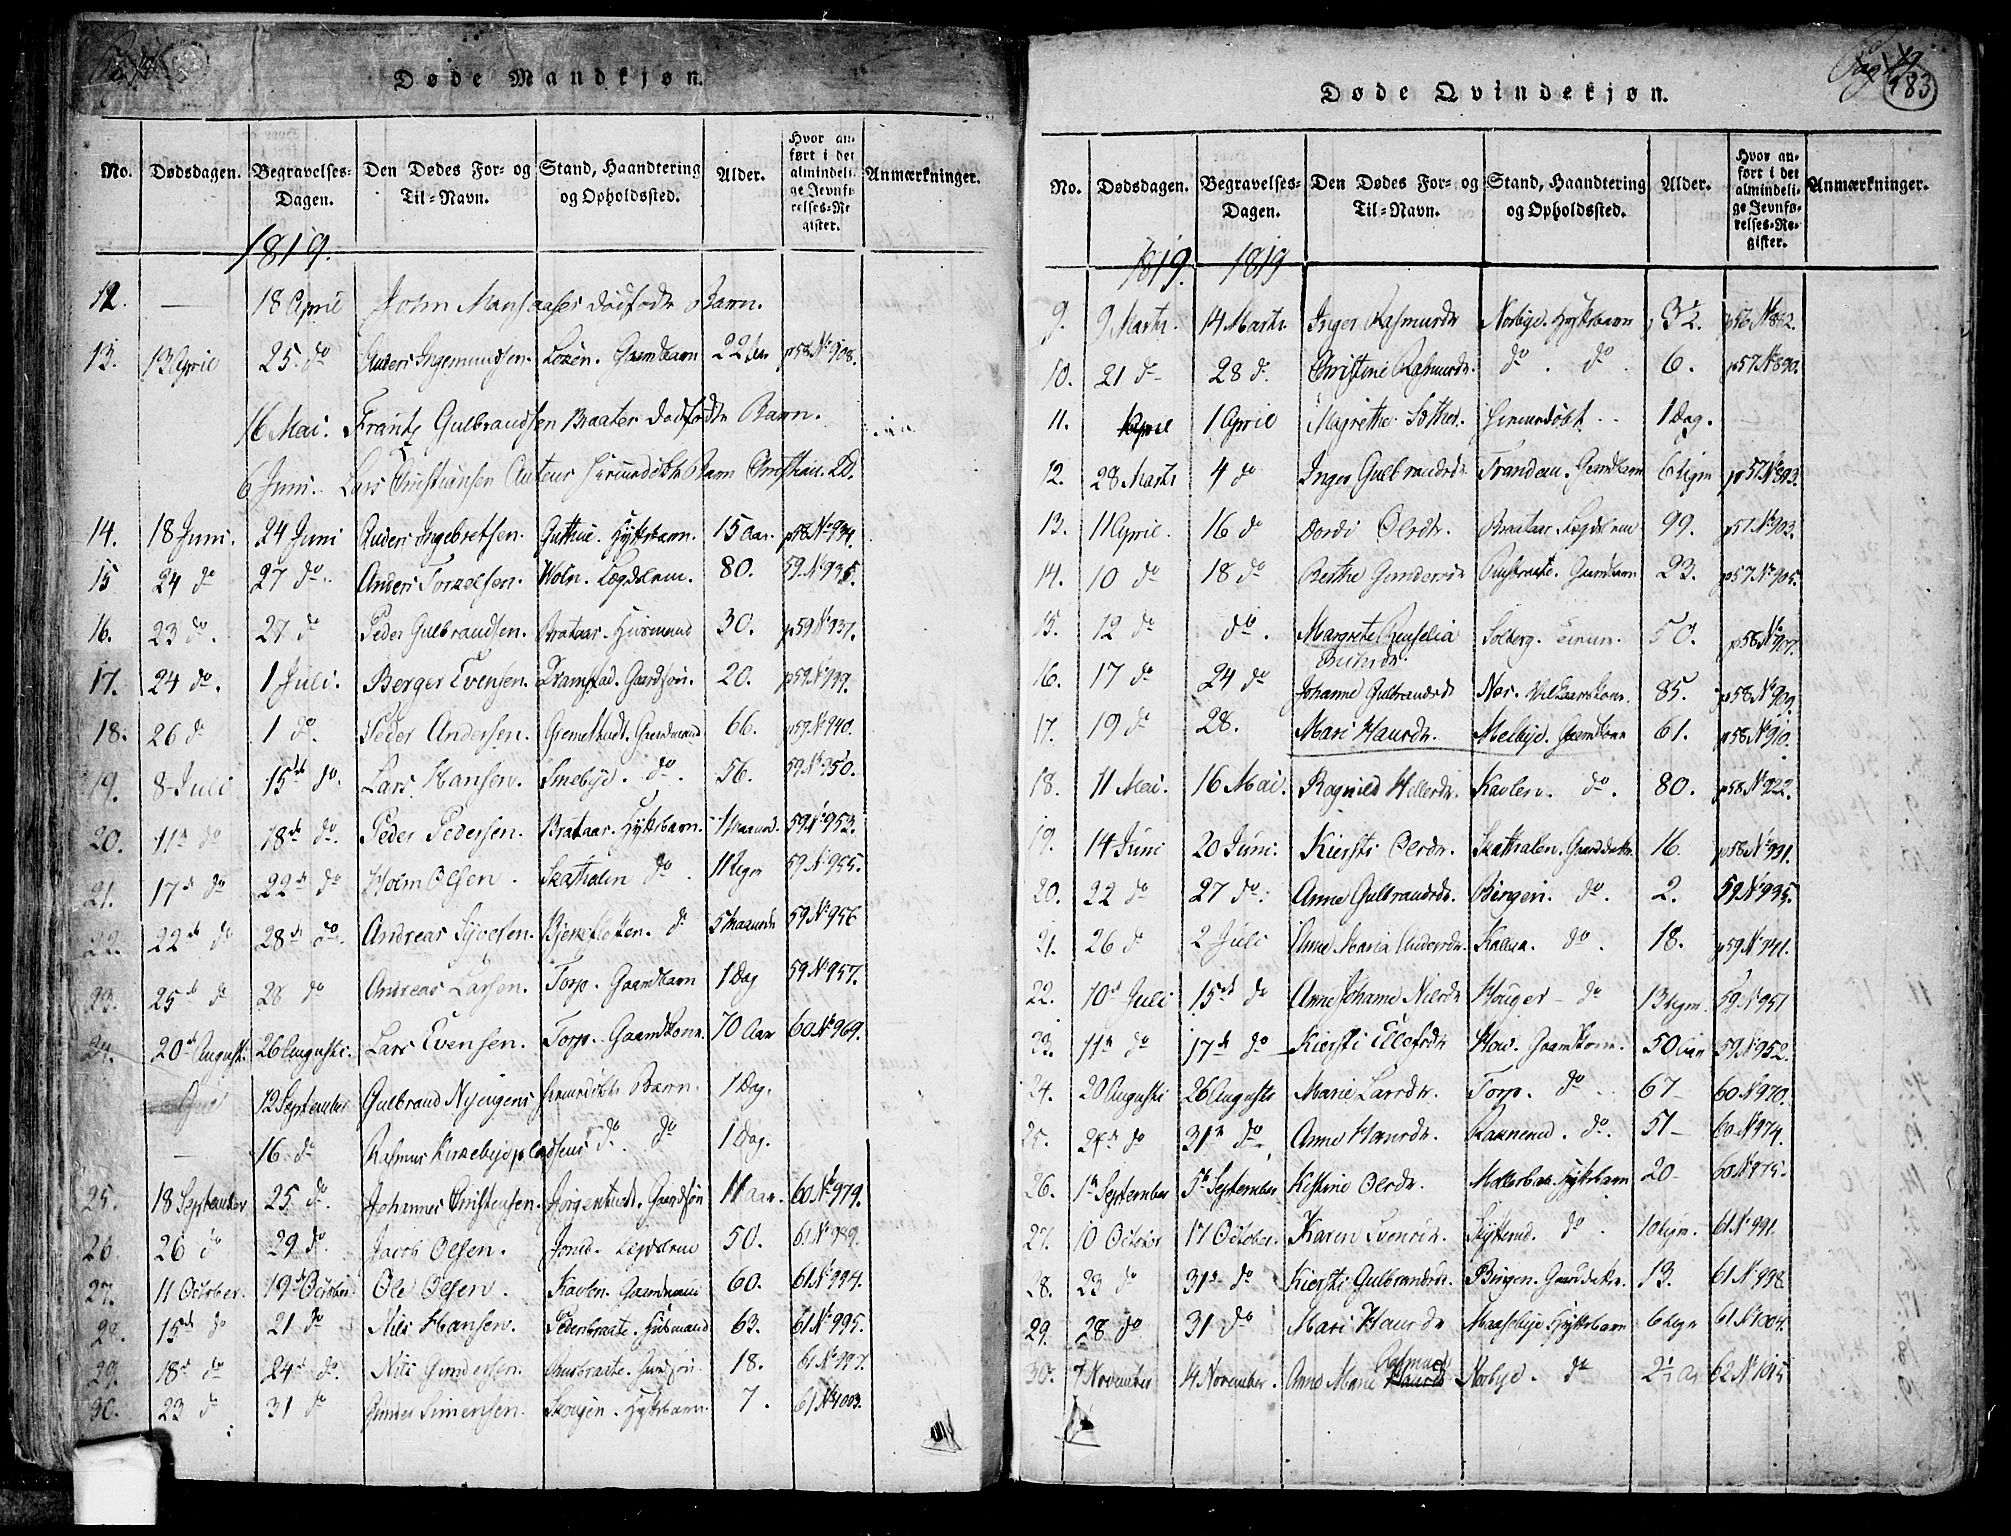 Døde Mandkjøn.
No. Dødsdagen. Begravelses-Dagen. Den Dødes For- og Til-Navn. Stand, Haandtering og Opholdssted. Alder. Hvor anført i det almindelige Jevnførelses-Register. Anmærkninger.
1819.
12. — 18 April John Mansaases dødfødte Barn.
13. 13 April 25 do Anders Ingemundsen. Gaardbarn 22 p58 No 908.
16 Mai. Frants Gulbrandsen Braaten dødfødte Barn.
6 Juni. Lars Christiansen Barn Christian. 2 D.
14. 18 Juni. 24 Juni Anders Ingebretsen. Hyttebarn. 15 Aar. p58 No 934.
15 24 do 27 do. Anders Torkelsen. Holn. Lægdslem. 80. 59. No 935.
16. 23 do. 27 do Peder Gulbrandsen. Brataas. Huusmand 30. p59 No 937.
17. 24 do. 1 Juli. Berger Evensen. Tramstad. Gaardsøn. 20. p59 No 939.
18. 26 do 1 do. Peder Andersen. Gremstudt. Gaardmand 66. p59 No 940.
19. 8 Juli 15de do. Lars Hansen. Smebye. do. 56. 59. No 950.
20. 11te do 18de do. Peder Pedersen. Brataas. Hyttebarn. 1 Maaned. 59 No 953.
21. 17de do 22de do Holm Olsen. Skathølen do. 11 Uger 59 No 955.
22. 22de do 28de do. Andreas Syvesen. Bjerkesletten. do 5 Maaneder 59 No 956
23. 25de do 28 do Andreas Larsen. Torp. Gaardbarn 1 Dag 59 No 957.
24. 20de Augusti. 26 Augusti. Lars Evensen. Torp. Gaardkone. 70 Aar 60 No 969.
12 September Gulbrand Nyengens hiemdøbte Barn. 1 Dag.
— 16 do Rasmus Kirkebyepladsens do do 1 Dag.
25. 18 September 25 do. Johannes Christensen. Jørgenstudt. Gaardsøn 11 Aar. 60 No 979.
26 26 do 29 do. Jacob Olsen. Jonsd. Lægdslem 50. 61 No 989.
27. 11 October. 19de October Ole Olsen. Kavlen. Gaardmand 60. 61 No 994.
28. 15de do 21 do Nils Hansen. Pederbraate. Huusmand 63. 61 No 995.
29. 18de do 24de do. Nils Gundersen. Gaardsøn. 18. 61 No 997.
30. 23 do 31 do Gunder Simensen. Skougen. Hyttebarn. 7. 61 No 1003.
Døde Qvindekjøn.
183
No. Dødsdagen. Begravelses-Dagen. Den Dødes For- og Til-Navn. Stand, Haandtering og Opholdssted. Alder. Hvor anført i det almindelige Jevnførelses-Register. Anmærkninger.
1819. 1819
9. 9 Marts. 14 Marts. Inger Rasmusdr. Norbye. Hyttebarn 3½. p56 No 882.
10. 21 do 28 do. Christine Rasmusdr. do. do. 6. p57 No 890.
11. April 1 April Magrethe Hiemdøbt 1 Dag.
12. 28 Marts 4 do Inger Gulbrandsdr. Trandem. Gaardbarn 6 Ugr p57 No 893.
13. 11 April. 16 do Dordi Olsdr. Braataas. Lægdslem 99. p57 No 903.
14. 10 do 18 do Berthe Gundersdr Gaardbarn 23. p57 No 905.
15. 12 do do. Margrete Solberg. 50. p58 No 907.
16. 17 do 24 do Johanne Gulbrandsdr Nes. Vilkaarskone. 85. p58 No 909.
17. 19 do 28. Mari Hansdr. Melbye. Gaardkone 61. p58 No 910.
18. 11 Mai. 16 Mai. Ragnild Hellesdr. Kavlen. do. 80. p58 No 922.
19. 14 Juni 20 Juni. Kiersti Olsdr. Skathølen. Gaarddatr. 16. p58 No 931.
20. 22 do 27 do. Anne Gulbrandsdr. Børgen. do. 2. 59 No 935.
21. 26 do 2 Juli Anne Maria Andersdr. do. 18. p59 No 941.
22. 10de Juli 15de do Anne Johanne Nilsdr Houger do 13 Ugr. 59. No 951
23. 11te do 17de do Kiersti Elefsdr How. Gaardkone. 50 Aar 59 No 952.
24. 20 Augusti 26 Augusti Marie Larsdr. Torp. do. 67 60 No 970.
25. 24de do 31te do. Anne Hansdr. Rannerud. do. 51 60 No 974.
26. 1te September 5te September Kistine Olsdr. Hyttebarn 20 60 No 975.
27. 10 October 17 October. Karen Svensdr. do. 10 Ugr. 61 No 991.
28. 23 do 31te do Kiersti Gulbrandsdr. Børgen. Gaarddatr. 13. 61 No 998.
29. 28 do 31 do Mari Hansdr Maasebye. Hyttebarn 6 Ugr 61 No 1004.
30. 7 November 14 November. Anne Marie Rasmusdr Norbye. do 2½ Ar 62 No 1015